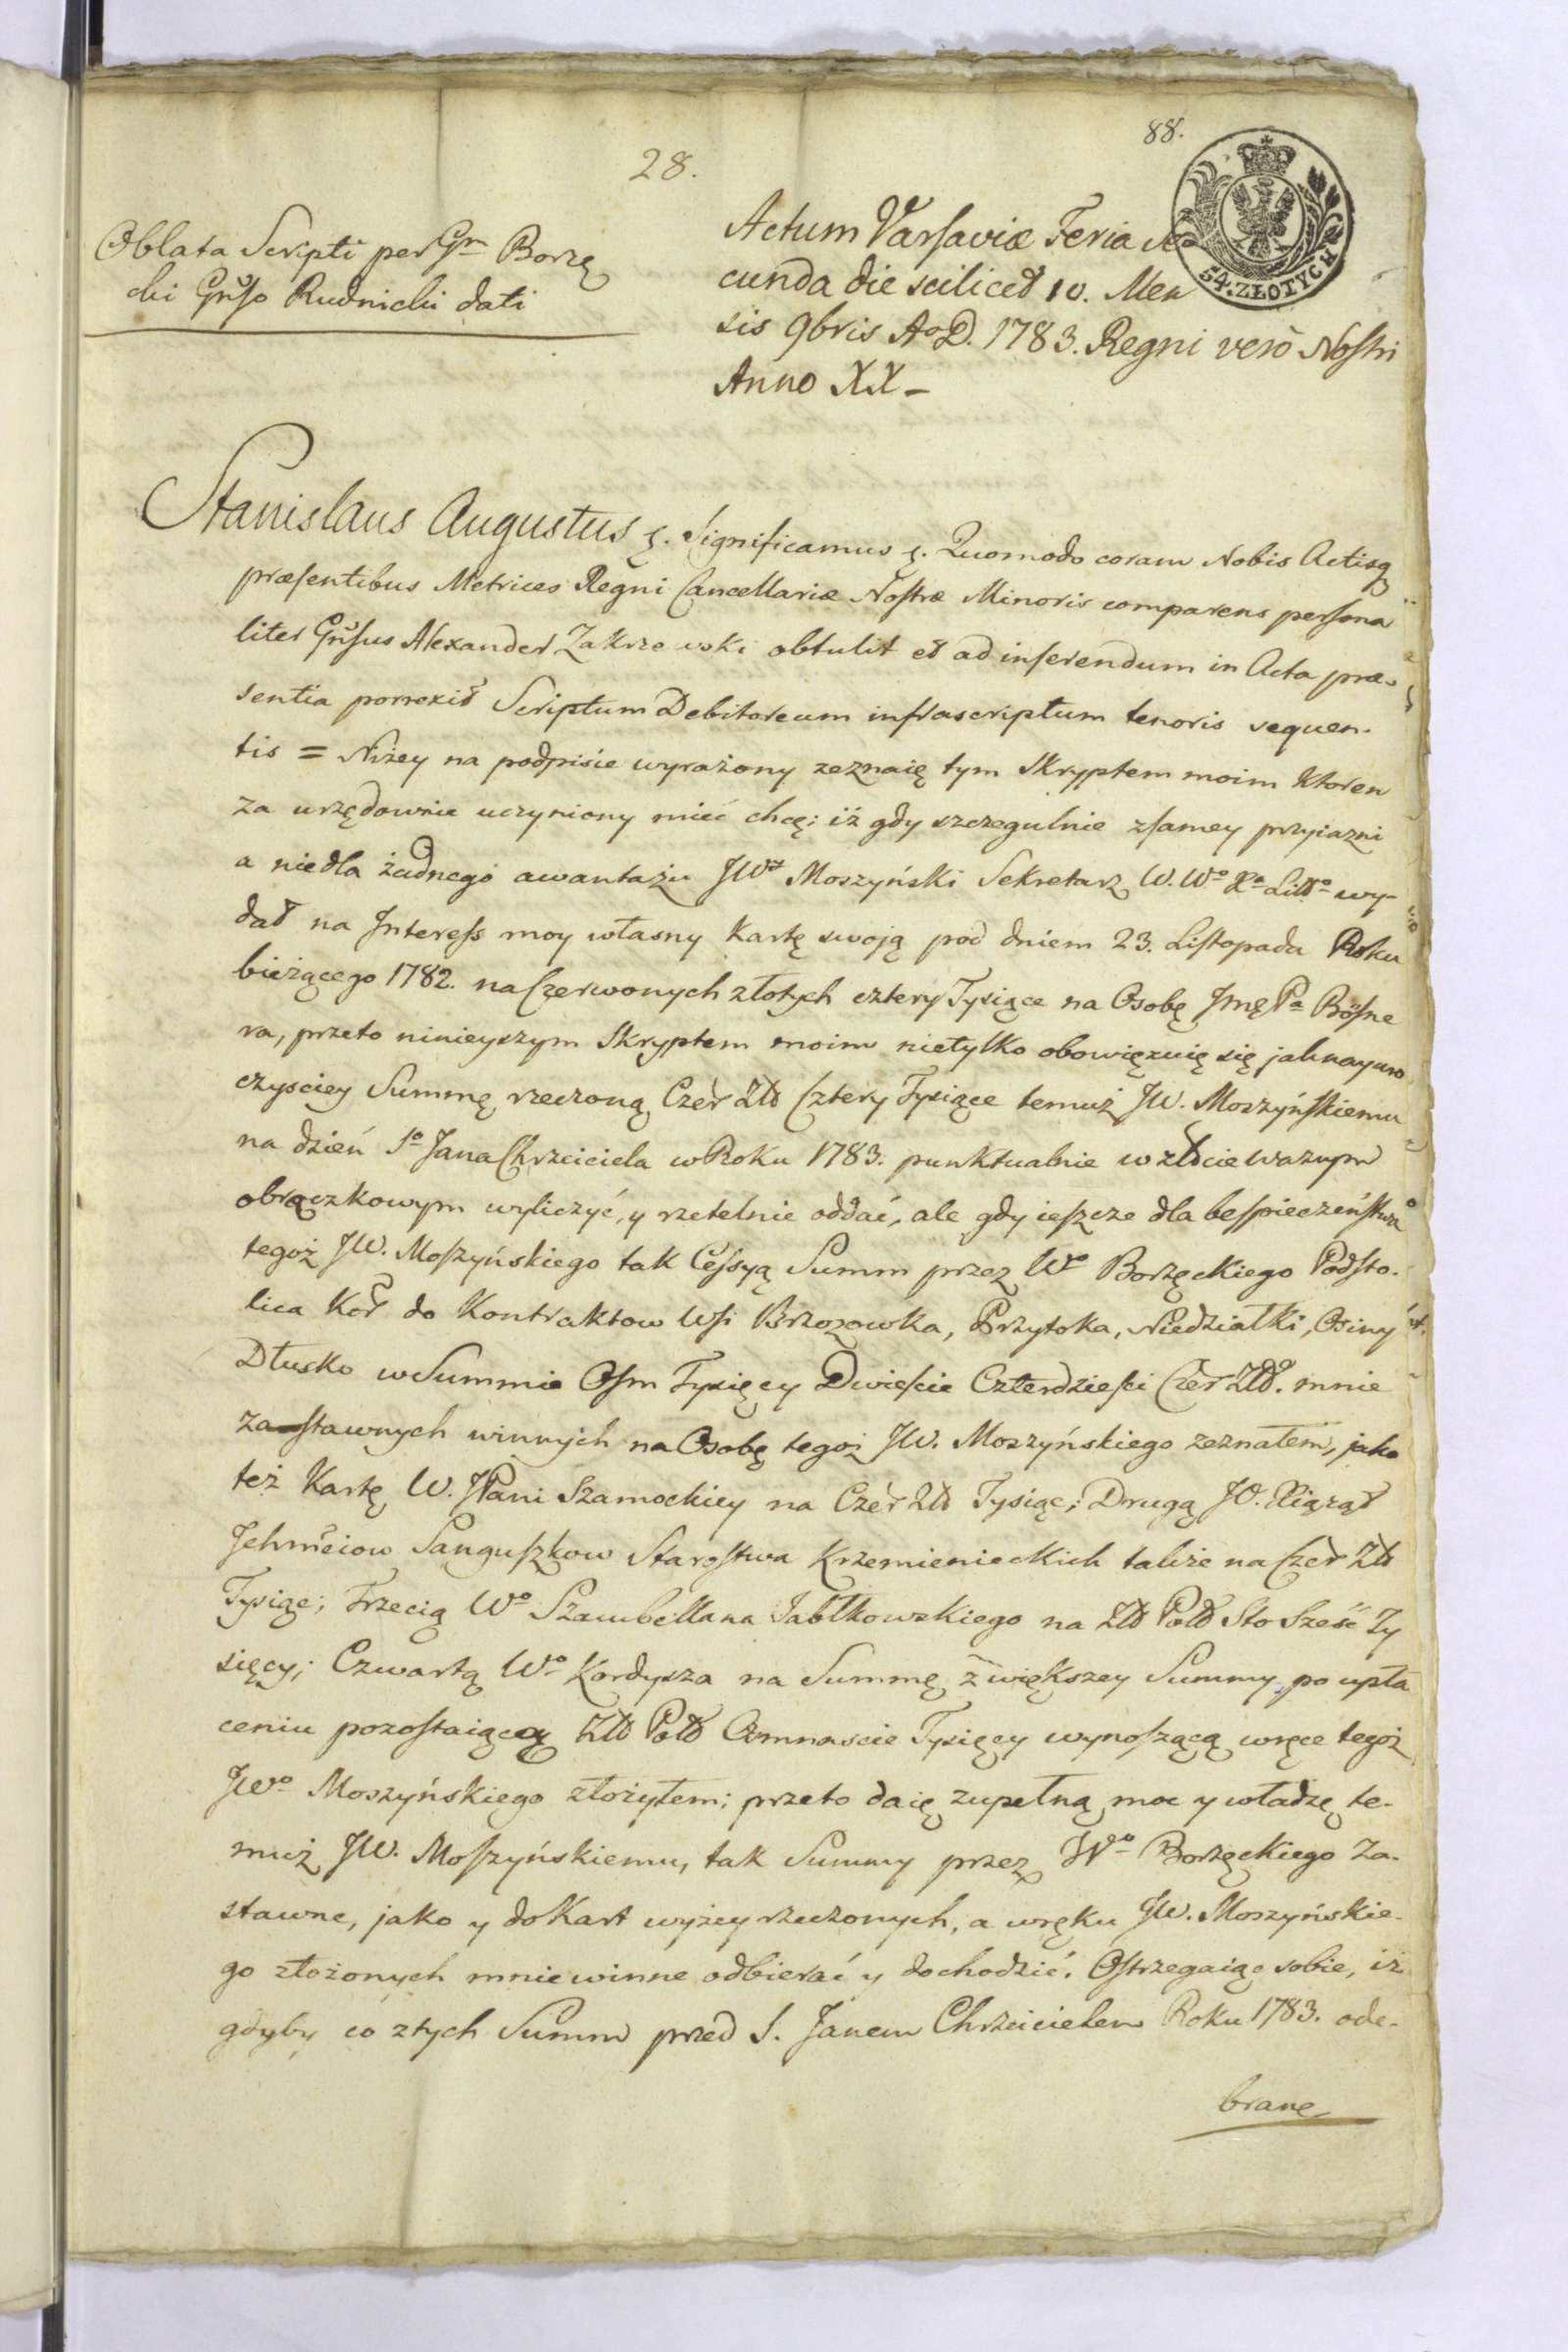 88.
28.
54. ZŁOTYCH
Oblata Scripti per Gm Borzę
cki Gnſo Rudnicki dati
Actum Varſaviæ Feria Se
cunda die scilicet 10. Men
sis 9bris Ao D. 1783. Regni verò Noſtri
Anno XX -
Stanislaus Augustus &. Significamus &. Quomodo coram Nobis Actisq
præſentibus Metrices Regni Cancellariæ Noſtræ Minoris comparens perſona
liter Gnſus Alexander Zakrzewski obtulit et ad inſerendum in Acta præ-
sentia porrexit Scriptum Debitoreum infrascriptum tenoris sequen-
tis = Niżey na podpisie wyrażony zeznaię tym Skryptem moim ktoren
za urzędownie uczyniony mieć chcę; iż gdy szczegulnie zſamey przyiazni
a niedla żadnego awantażu JWy Moszyński Sekretarz W. Wo Xa Litto wy-
dał na Intereſs moy własny Kartę swoją pod dniem 23. Liſtopada Roku
bieżącego 1782. na Czerwonych złotych cztery Tysiące na Osobę Jmę Pa Böſne
ra, przeto ninieyszym Skryptem moim nietylko obowięzuię się jaknayuro
czysciey Summę rzeczoną Czer Złł Cztery Tysiące temuż JW. Moszyńſkiemu
na dzień So Jana Chrzciciela w Roku 1783. punktualnie w złocie ważnym
obrączkowym wyliczyć, y rzetelnie oddać, ale gdy ieſzcze dla beſpieczeńſtwa
tegoż JW. Moſzyńskiego tak Ceſsyą Summ przez Wo Borzęckiego Podſto-
lica Kor do Kontraktow Wſi Brzozowka, Przytoka, Niedziałki, Osiny
Dłusko w Summie Oſm Tysięcy Dwieſcie Czterdzieſci Czer Złł. mnie
zaſtawnych winnych na Osobę tegoż JW. Moszyńskiego zeznałem, jako
też Kartę W. JPani Szamockiey na Czer Złł Tysiąc; Drugą JO. Xiążąt
Jchmciow Sanguſzkow Staroſtwa Krzemienieckich także na Czer Złł
Tysiąc; Trzecią Wo Szambellana Jabłkowskiego na Złł Polł Sto Sześć Ty
sięcy; Czwartą Wo Kordysza na Summę z większey Summy po upła
ceniu pozoſtaiącą Złł Polł Osmnascie Tysięcy wynoſzącą wręce tegoż
JWo Moszyńskiego złożyłem; przeto daię zupełną moc y władzę te-
muż JW. Moſzyńskiemu, tak Summy przez Wo Borzęckiego Za-
stawne, jako y do Kart wyżey rzeczonych, a wręku JW. Moszyńskie-
go złożonych mnie winne odbierać y dochodzić. Oſtrzegaiąc sobie, iż
gdyby co z tych Summ przed S. Janem Chrzcicielem Roku 1783. ode-
brane